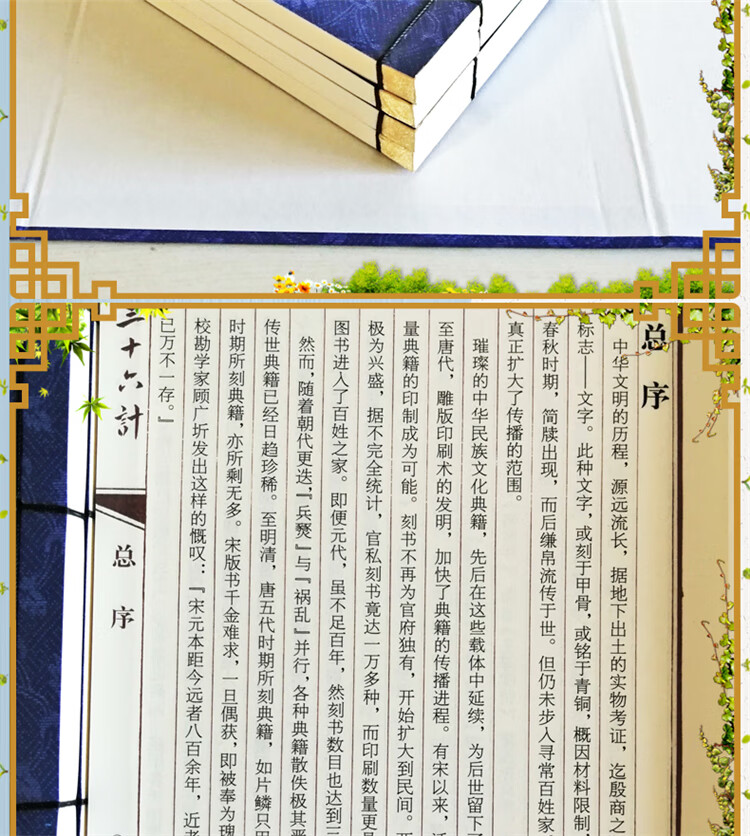 总序
中华文明的历程，源远流长，据地下出土的实物考证，迄殷商之
标志——文字。此种文字，或刻于甲骨，或铭于青铜，概因材料限制，
春秋时期，简牍出现，而后缣帛流传于世。但仍未步入寻常百姓家
真正扩大了传播的范围。
璀璨的中华民族文化典籍，先后在这些载体中延续，为后世留下了
至唐代，雕版印刷术的发明，加快了典籍的传播进程。有宋以来，
量典籍的印制成为可能。刻书不再为官府独有，开始扩大到民间。
极为兴盛，据不完全统计，官私刻书竟达一万多种，而印刷数量更是
图书进入了百姓之家。即便元代，虽不足百年，然刻书数目也达到三
然而，随着朝代更迭，『兵燹』与『祸乱』并行，各种典籍散佚极其严
传世典籍已经日趋珍稀。至明清，唐五代时期所刻典籍，如片鳞只
时期所刻典籍，亦所剩无多。宋版书千金难求，一日偶获，即被奉为瑰
校勘学家顾广圻发出这样的慨叹：『宋元本距今远者八百余年，近者
已万不一存。』
三十六計
总序